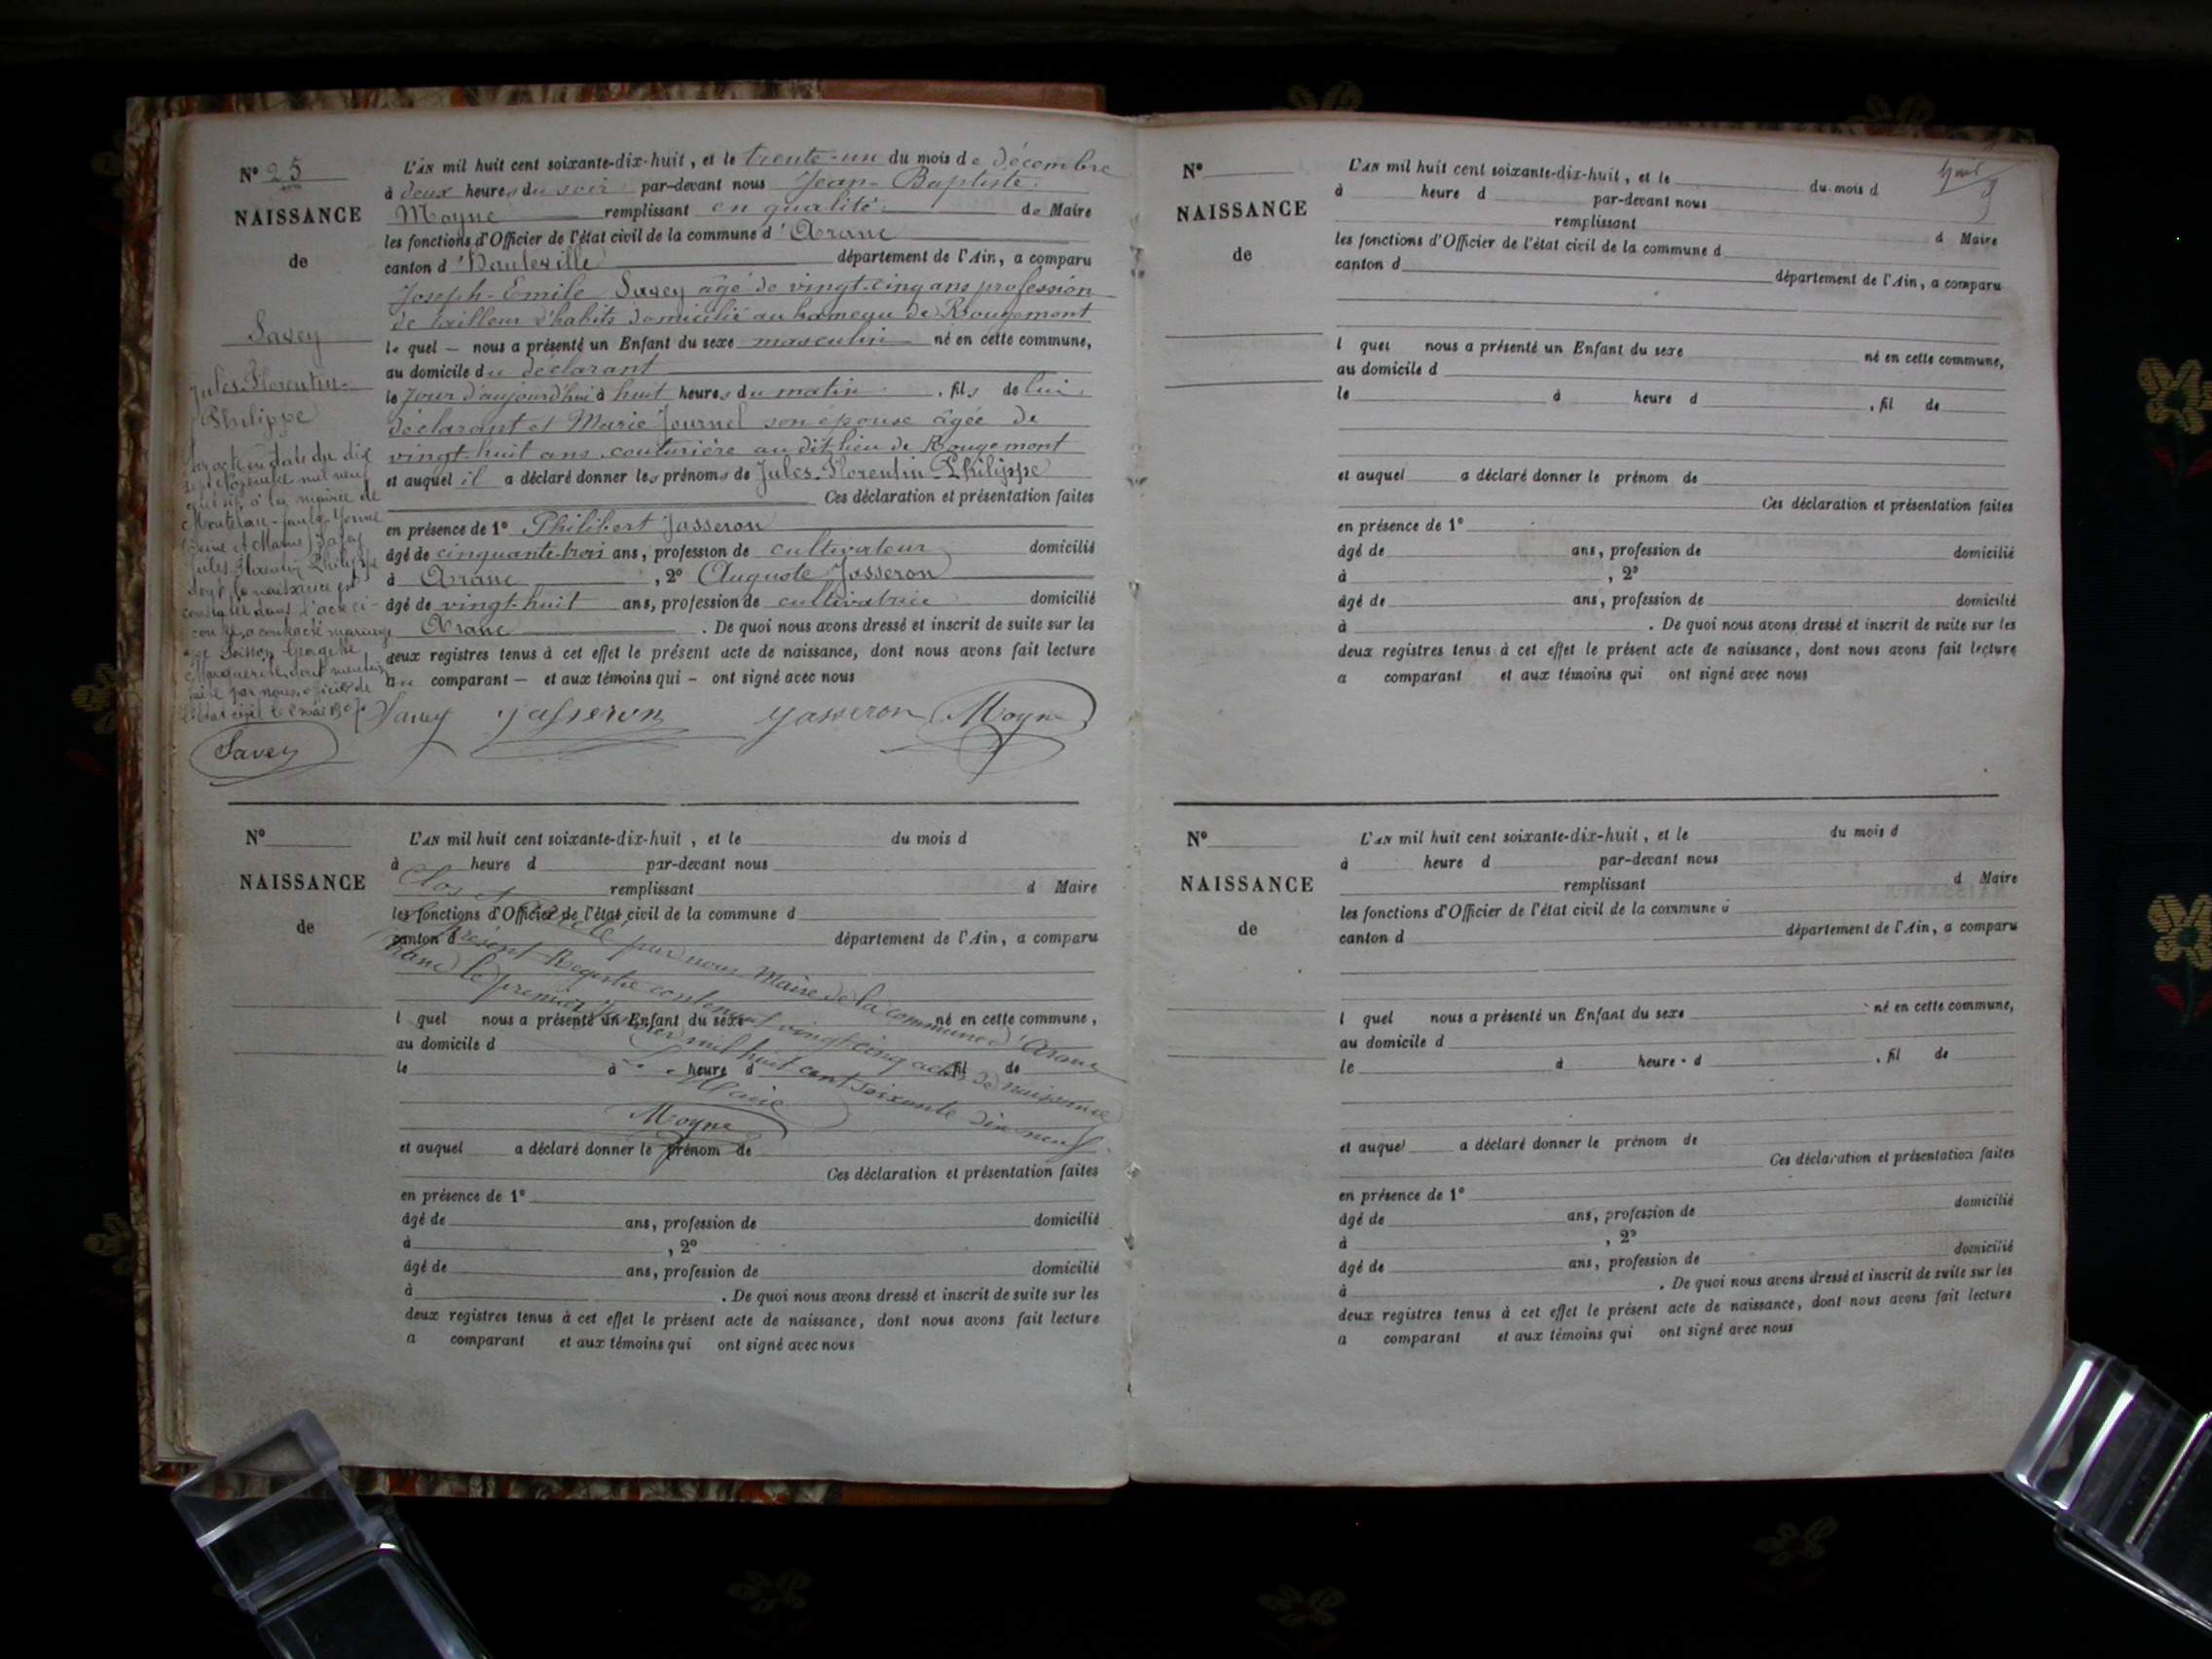 N° 25
NAISSANCE
de
Savey
Jules-Florentin-
Philippe
L'AN mil huit cent soixante-dix-huit, et le trente-un du mois de décembre
à deux heures du soir par-devant nous Jean-Baptiste
Moyne remplissant en qualité de Maire
les fonctions d'Officier de l'état civil de la commune d'Aranc
canton d'Hauteville département de l'Ain, a comparu
Joseph-Emile Savey âgé de vingt-cinq ans profession
de tailleur d'habits domicilié au hameau de Rougemont
le quel — nous a présenté un Enfant du sexe masculin né en cette commune,
au domicile du déclarant
le jour d'aujourd'hui à huit heures du matin, fils de lui
déclarant et Marie Journel son épouse âgée de
vingt-huit ans couturière au dit lieu de Rougemont
et auquel il a déclaré donner les prénoms de Jules-Florentin-Philippe
Ces déclaration et présentation faites
en présence de 1° Philibert Jasseron
âgé de cinquante-trois ans, profession de cultivateur domicilié
à Aranc, 2° Auguste Jasseron
âgé de vingt-huit ans, profession de cultivatrice domicilié
Aranc. De quoi nous avons dressé et inscrit de suite sur les
deux registres tenus à cet effet le présent acte de naissance, dont nous avons fait lecture
au comparant — et aux témoins qui — ont signé avec nous
Savey Jasseron Jasseron Moyne
Par acte en date du dix
sept mil neuf
à la mairie de
Montereau-faut-Yonne
(Seine et Marne) Savey
Jules Florentin Philippe
dont la naissance est
constatée dans l'acte ci-
contre, a contracté mariage
Georgette
Marguerite, dont mention
faite par nous officier de
l'état civil le
Savey
N°
NAISSANCE
de
L'AN mil huit cent soixante-dix-huit, et le du mois d
à heure d par-devant nous
remplissant d Maire
les fonctions d'Officier de l'état civil de la commune d
canton d département de l'Ain, a comparu
l quel nous a présenté un Enfant du sexe né en cette commune,
au domicile d
le à heure d, fil de
et auquel a déclaré donner le prénom de
Ces déclaration et présentation faites
en présence de 1°
âgé de ans, profession de domicilié
à, 2°
âgé de ans, profession de domicilié
à. De quoi nous avons dressé et inscrit de suite sur les
deux registres tenus à cet effet le présent acte de naissance, dont nous avons fait lecture
a comparant et aux témoins qui ont signé avec nous
Clos et
arrêté par nous Maire de la commune d'Aranc
présent Registre contenant vingt-cinq actes de naissance
Aranc le premier Janvier mil huit cent soixante dix-neuf
Le Maire
Moyne
N°
NAISSANCE
de
L'AN mil huit cent soixante-dix-huit, et le du mois d
à heure d par-devant nous
remplissant d Maire
les fonctions d'Officier de l'état civil de la commune d
canton d département de l'Ain, a comparu
l quel nous a présenté un Enfant du sexe né en cette commune,
au domicile d
le à heure d, fil de
et auquel a déclaré donner le prénom de
Ces déclaration et présentation faites
en présence de 1°
âgé de ans, profession de domicilié
à, 2°
âgé de ans, profession de domicilié
à. De quoi nous avons dressé et inscrit de suite sur les
deux registres tenus à cet effet le présent acte de naissance, dont nous avons fait lecture
a comparant et aux témoins qui ont signé avec nous
N°
NAISSANCE
de
L'AN mil huit cent soixante-dix-huit, et le du mois d
à heure d par-devant nous
remplissant d Maire
les fonctions d'Officier de l'état civil de la commune d
canton d département de l'Ain, a comparu
l quel nous a présenté un Enfant du sexe né en cette commune,
au domicile d
le à heure d, fil de
et auquel a déclaré donner le prénom de
Ces déclaration et présentation faites
en présence de 1°
âgé de ans, profession de domicilié
à, 2°
âgé de ans, profession de domicilié
à. De quoi nous avons dressé et inscrit de suite sur les
deux registres tenus à cet effet le présent acte de naissance, dont nous avons fait lecture
a comparant et aux témoins qui ont signé avec nous